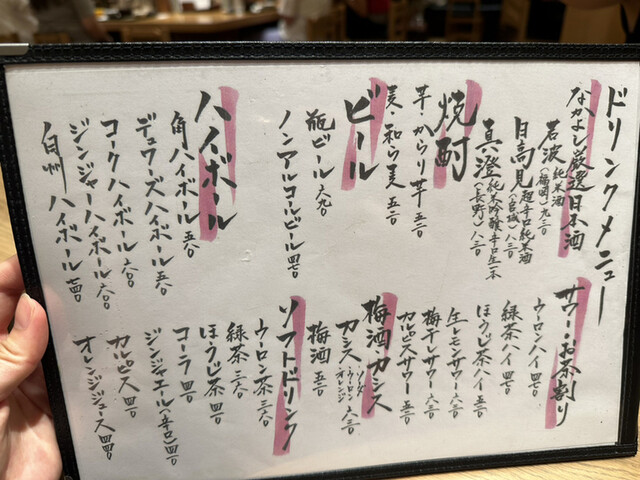 ドリンクメニュー
なかよし厳選日本酒
若波 純米酒（福岡）九三〇
日高見 超辛口純米酒（宮城）八三〇
真澄 純米吟醸辛口生一本（長野）八三〇
焼酎
芋・からり芋 五三〇
麦・和ら麦 五三〇
ビール
瓶ビール 六九〇
ノンアルコールビール 四七〇
ハイボール
角ハイボール 五八〇
デュワーズハイボール 五八〇
コークハイボール 六〇〇
ジンジャーハイボール 六〇〇
白州ハイボール
サワー・お茶割り
ウーロンハイ 四七〇
緑茶ハイ 四七〇
ほうじ茶ハイ 五三〇
生レモンサワー 六三〇
梅干しサワー 六三〇
カルピスサワー 五三〇
梅酒 カシス
カシス ソーダ ウーロン オレンジ 六三〇
梅酒 五三〇
ソフトドリンク
ウーロン茶 三六〇
緑茶 三六〇
ほうじ茶 四四〇
コーラ 四四〇
ジンジャエール（辛口）四四〇
カルピス 四四〇
オレンジジュース 四四〇